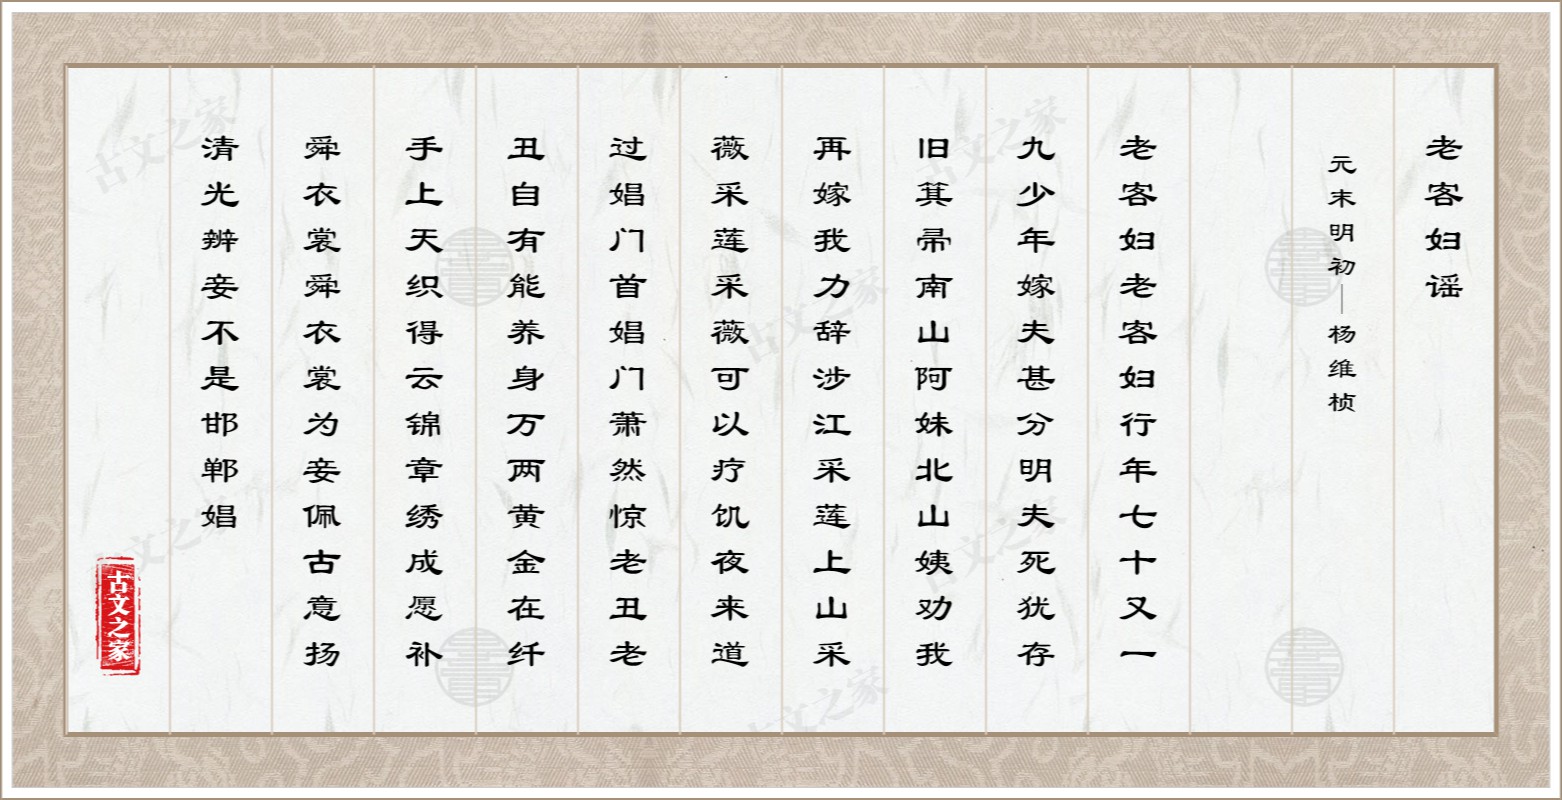 老客妇谣
元末明初—杨维桢
老客妇老客妇行年七十又一
九少年嫁夫甚分明夫死犹存
旧箕帚南山阿妹北山姨劝我
再嫁我力辞涉江采莲上山采
薇采莲采薇可以疗饥夜来道
过娼门首娼门萧然惊老丑老
丑自有能养身万两黄金在纤
手上天织得云锦章绣成愿补
舜衣裳舜衣裳为妾佩古意扬
清光辨妾不是邯郸娼
古文之家